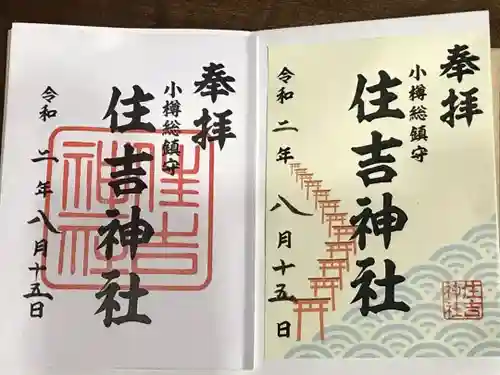 奉拝
小樽総鎮守
住吉神社
令和二年八月十五日
住吉神社
奉拝
小樽総鎮守
住吉神社
令和二年八月十五日
住吉神社